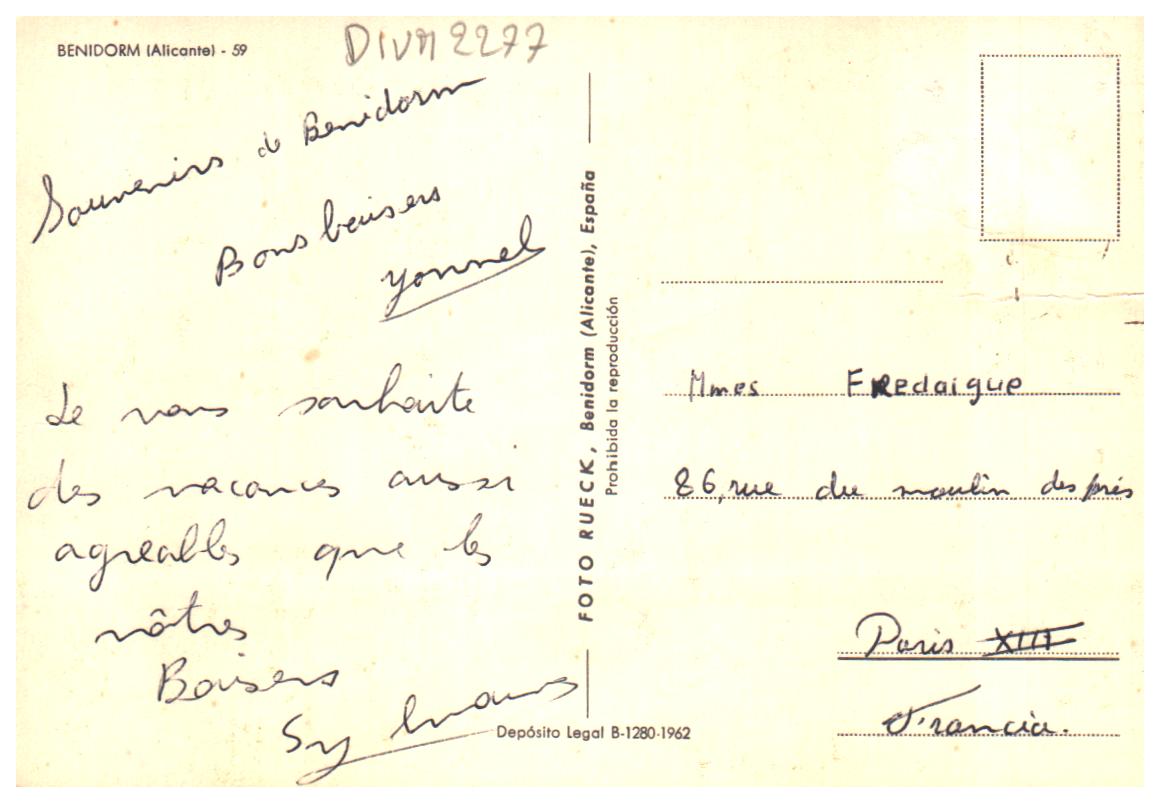 BENIDORM (Alicante) - 59
DIVM 2277
Souvenirs de Benidorm
Bons baisers
Yonnel
Je vous souhaite
des vacances aussi
agréables que les
nôtres
Baisers
Sylviane
Depósito Legal B-1280-1962
FOTO RUECK, Benidorm (Alicante), España
Prohibida la reproducción
Mmes FREDaigue
86, rue du moulin des prés
Paris XIII
Francia.